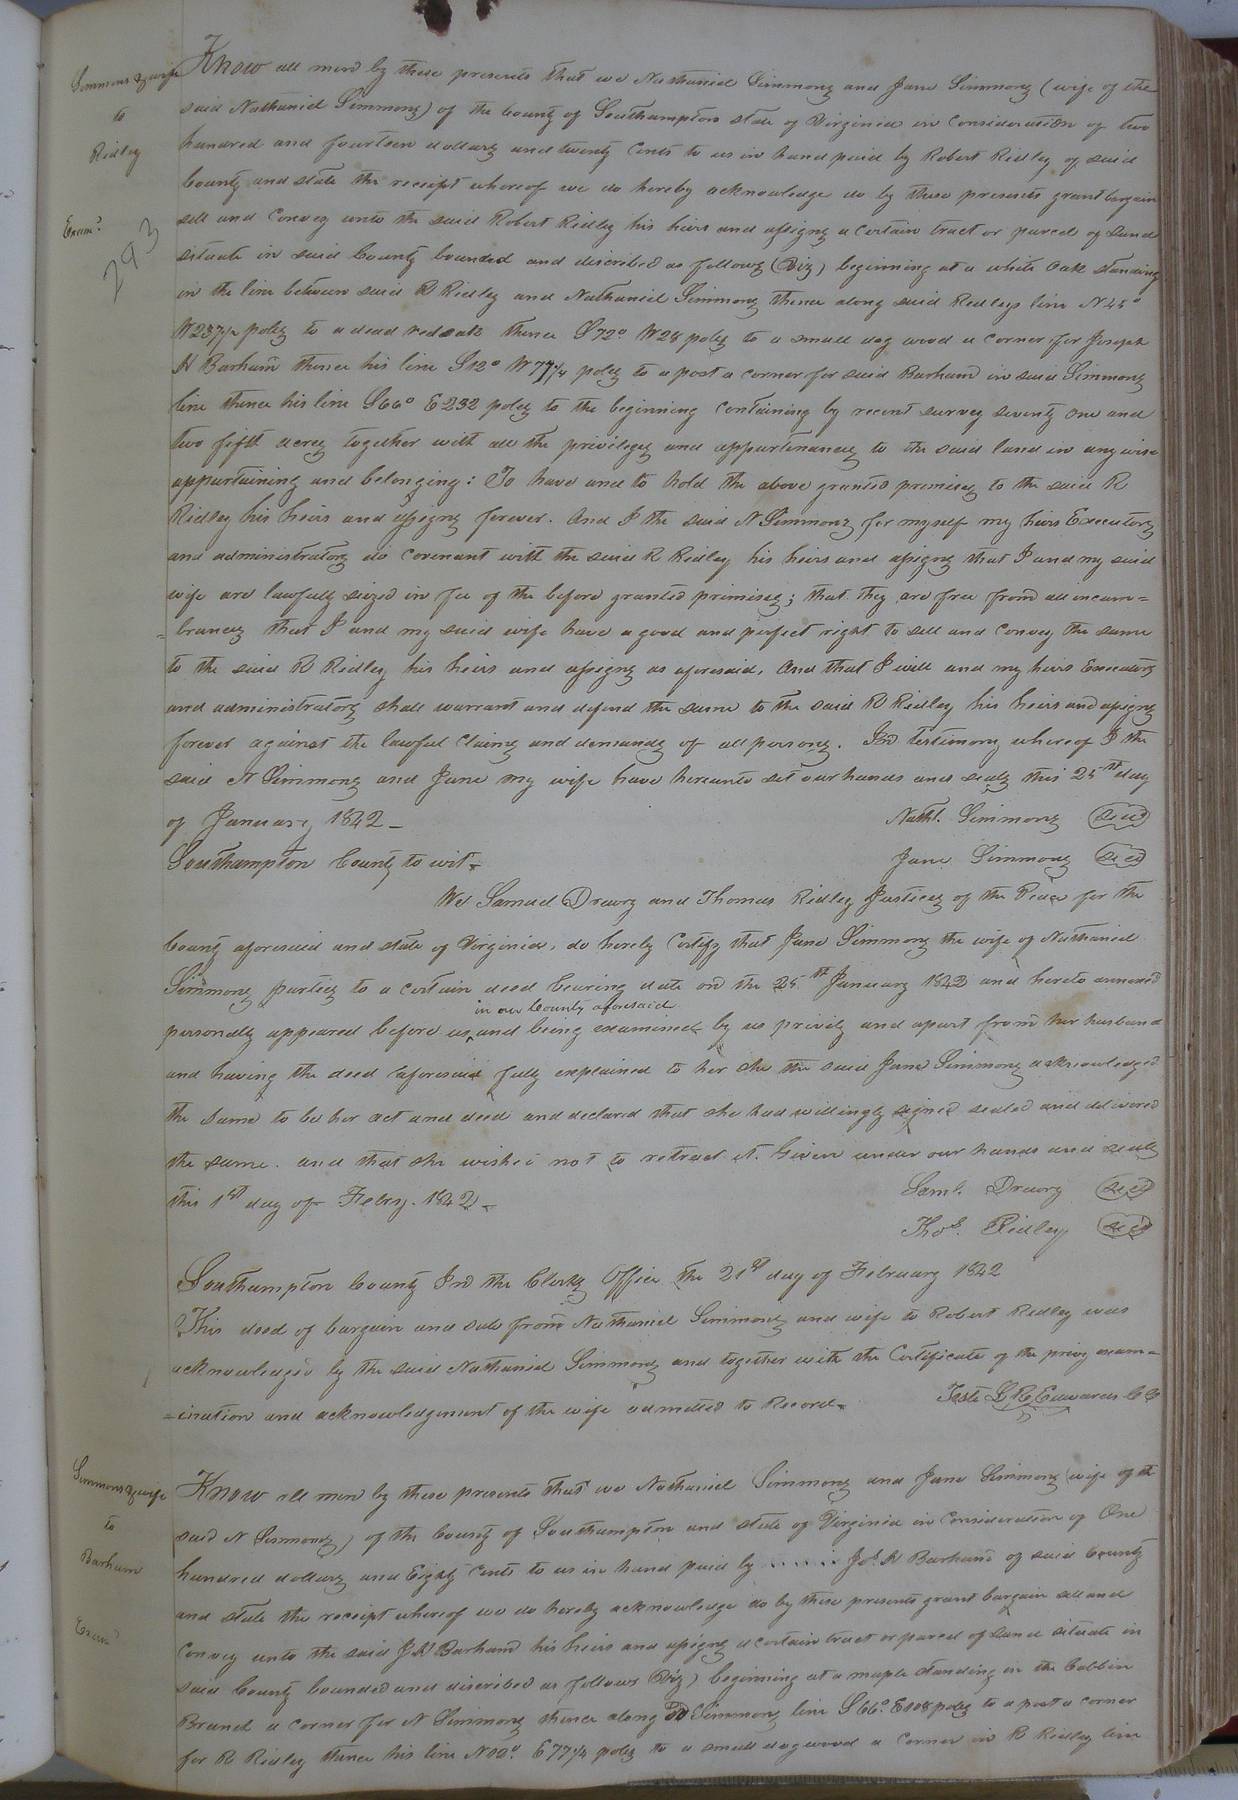 Simmons & wife
to
Ridley
Exam.d
293
Know all men by these presents that we Nathaniel Simmons and Jane Simmons (wife of the
said Nathaniel Simmons) of the County of Southampton state of Virginia in Consideration of two
hundred and fourteen dollars and twenty Cents to us in hand paid by Robert Ridley of said
County and state the receipt whereof we do hereby acknowledge do by these presents grant bargain
sell and Convey unto the said Robert Ridley his heirs and assigns a Certain tract or parcel of Land
situate in said County bounded and described as follows (Viz) beginning at a white Oak standing
in the line between said R Ridley and Nathaniel Simmons thence along said Ridleys line N 45°
W 237½ poles to a dead red oak thence S 72° W 28 poles to a small dog wood a corner for Joseph
H Barham thence his line S 12° W 77¼ poles to a post a corner for said Barham in said Simmons
line thence his line S 66° E 232 poles to the beginning Containing by recent survey seventy one and
two fifth acres together with all the privileges and appurtenances to the said land in any wise
appurtaining and belonging: To have and to hold the above granted premises to the said R
Ridley his heirs and assigns forever. And I the said N Simmons for myself my heirs Executors
and administrators do Covenant with the said R Ridley his heirs and assigns that I and my said
wife are lawfully seized in fee of the before granted primises; that they are free from all incum=
=brances that I and my said wife have a good and perfect right to sell and Convey the same
to the said R Ridley his heirs and assigns as aforesaid, And that I will and my heirs Executors
and administrators shall warrant and defend the same to the said R Ridley his heirs and assigns
forever against the lawful Claims and demands of all persons. In testimony whereof I the
said N Simmons and Jane my wife have hereunto set our hands and seals this 25th day
of January 1842 _ Nathl. Simmons (seal)
Southampton County to wit. Jane Simmons (seal)
We Samuel Drewry and Thomas Ridley Justices of the Peace for the
County aforesaid and state of Virginia, do hereby Certify that Jane Simmons the wife of Nathaniel
Simmons parties to a certain deed bearing date on the 25th January 1842 and hereto annexed
in our County aforesaid
personally appeared before us, and being examined by us privily and apart from her husband
and having the deed aforesaid fully explained to her she the said Jane Simmons acknowledged
the same to be her act and deed and declared that she had willingly signed sealed and delivered
the same. and that she wished not to retract it. Given under our hands and seals
this 1st day of Feby. 1842 _ Saml. Drewry (seal)
Thos. Ridley (seal)
Southampton County In the Clerks Office the 21st day of February 1842
This deed of bargain and sale from Nathaniel Simmons and wife to Robert Ridley was
acknowledged by the said Nathaniel Simmons and together with the Certificate of the privy exam=
=ination and acknowledgement of the wife admitted to Record. Teste L R Edwards CC
Simmons & wife
to
Barham
Exam.d
Know all men by these presents that we Nathaniel Simmons and Jane Simmons (wife of the
said N Simmons) of the County of Southampton and state of Virginia in Consideration of One
hundred dollars and Eighty Cents to us in hand paid by ...... Jos. H Barham of said County
and state the receipt whereof we do hereby acknowledge do by these presents grant bargain sell and
Convey unto the said J H Barham his heirs and assigns a certain tract or parcel of Land situate in
said County bounded and discribed as follows (Viz) beginning at a maple standing in the Cabbin
Branch a corner for N Simmons thence along Simmons line S 66° E poles to a post a corner
for R Ridley thence his line E 77¼ poles to a small dogwood a Corner in R Ridley line